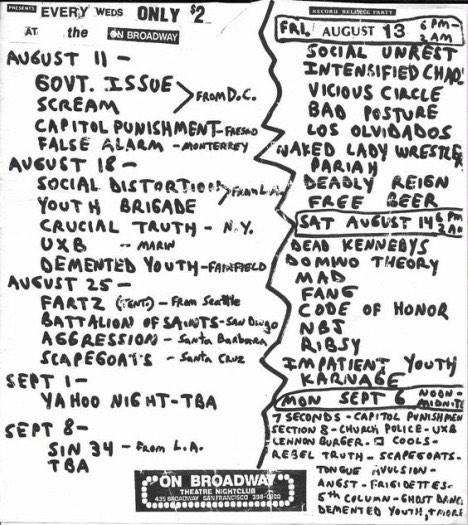 PRESENTS EVERY WEDS ONLY $2
AT the ON BROADWAY
AUGUST 11 -
GOVT. ISSUE
SCREAM
FROM D.C.
CAPITOL PUNISHMENT - FRESNO
FALSE ALARM - MONTERREY
AUGUST 18 -
SOCIAL DISTORTION
YOUTH BRIGADE
FROM L.A.
CRUCIAL TRUTH - N.Y.
UXB - MARIN
DEMENTED YOUTH - FAIRFIELD
AUGUST 25 -
FARTZ (TENT.) - From Seattle
BATTALION OF SAINTS - SAN Diego
AGGRESSION - Santa Barbara
SCAPEGOATS - Santa Cruz
SEPT 1 -
YAHOO NIGHT - TBA
SEPT 8 -
SIN 34 - From L.A.
TBA
RECORD RELEASE PARTY
FRI, AUGUST 13 6PM-
2AM
SOCIAL UNREST
INTENSIFIED CHAO
VICIOUS CIRCLE
BAD POSTURE
LOS OLVIDADOS
NAKED LADY WRESTLE
PARIAH
DEADLY REIGN
FREE BEER
SAT AUGUST 14 6PM
2AM
DEAD KENNEDYS
DOMINO THEORY
MAD
FANG
CODE OF HONOR
NBJ
RIBSY
IMPATIENT YOUTH
KARNAGE
MON SEPT 6 NOON-
MIDNITE
7 SECONDS - CAPITOL PUNISHMEN
SECTION 8 - CHURCH POLICE - UXB
LENNON BURGER - COOLS -
REBEL TRUTH - SCAPEGOATS -
TONGUE AVULSION -
ANGST - FRIGIDETTES -
5th COLUMN - GHOST DANC
DEMENTED YOUTH, + MORE
ON BROADWAY
THEATRE NIGHTCLUB
435 BROADWAY SAN FRANCISCO